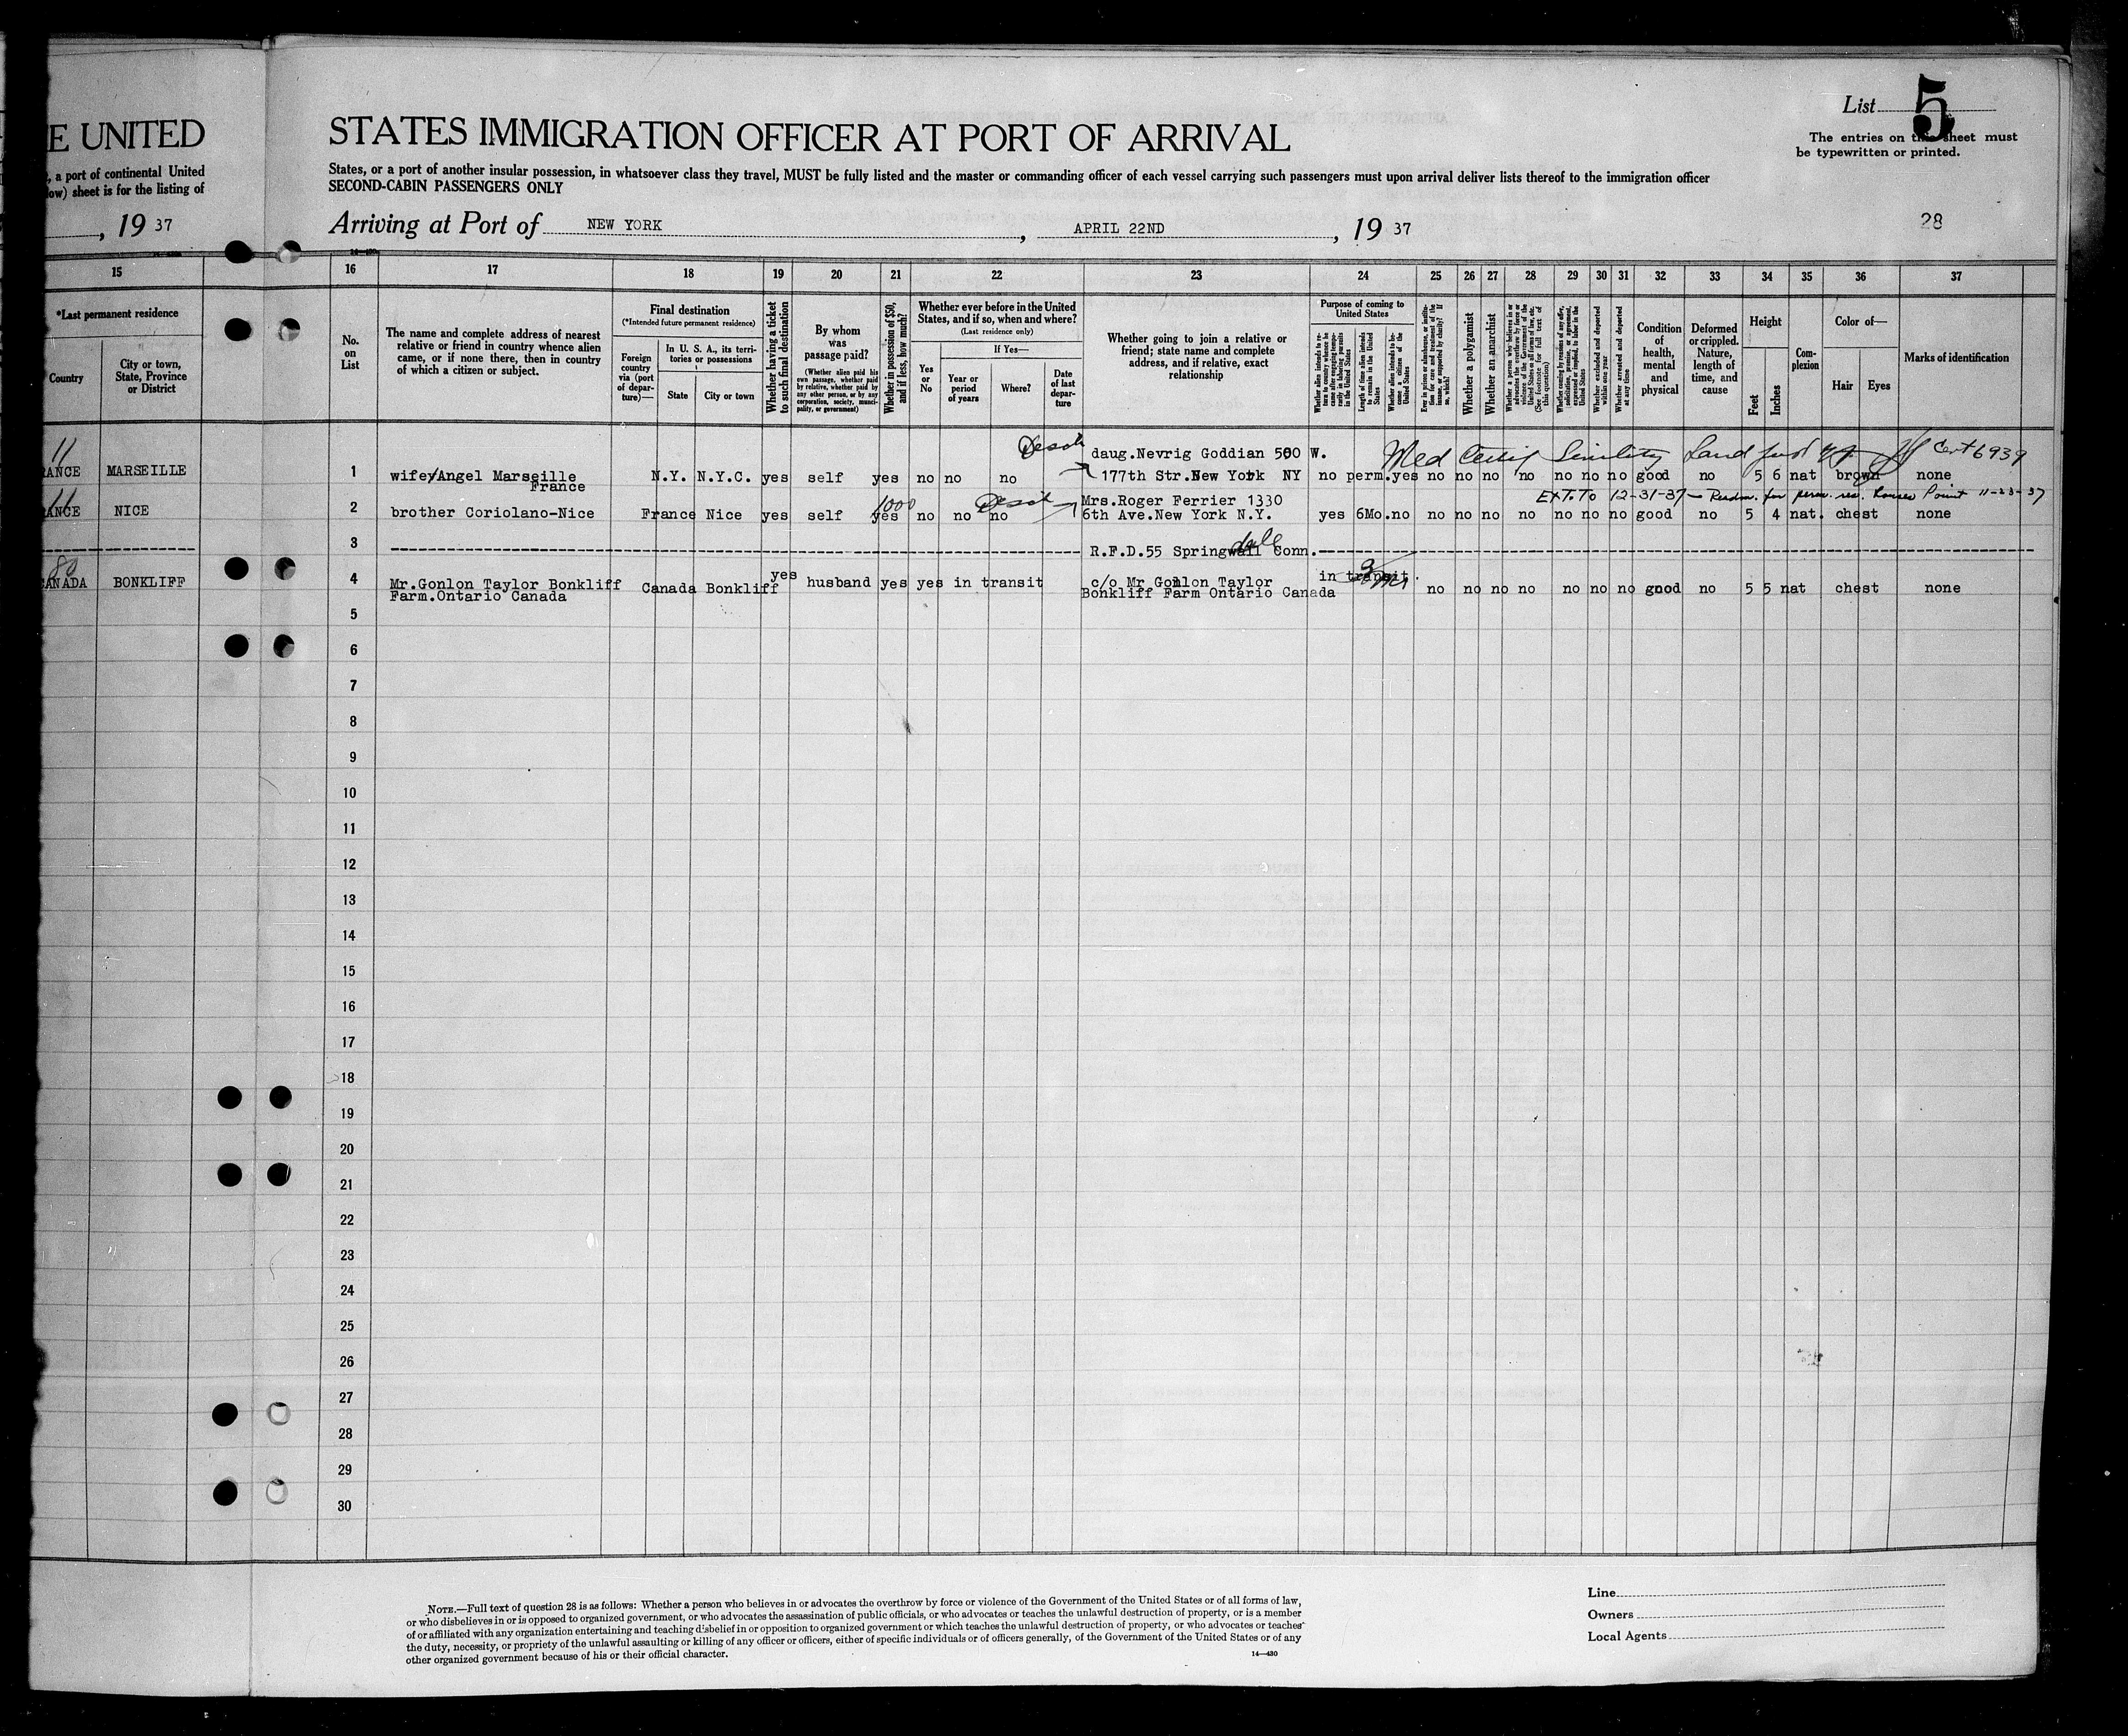 List 5
E UNITED
STATES IMMIGRATION OFFICER AT PORT OF ARRIVAL
The entries on this sheet must
be typewritten or printed.
, a port of continental United
low) sheet is for the listing of
States, or a port of another insular possession, in whatsoever class they travel, MUST be fully listed and the master or commanding officer of each vessel carrying such passengers must upon arrival deliver lists thereof to the immigration officer
SECOND-CABIN PASSENGERS ONLY
, 19 37
Arriving at Port of NEW YORK, APRIL 22ND, 19 37
28
15 16 17 18 19 20 21 22 23 24 25 26 27 28 29 30 31 32 33 34 35 36 37
*Last permanent residence
Country
City or town,
State, Province
or District
No.
on
List
The name and complete address of nearest
relative or friend in country whence alien
came, or if none there, then in country
of which a citizen or subject.
Final destination
(*Intended future permanent residence)
Foreign
country
via (port
of depar-
ture)—
In U. S. A., its terri-
tories or possessions
State
City or town
Whether having a ticket
to such final destination
By whom
was
passage paid?
(Whether alien paid his
own passage, whether paid
by relative, whether paid by
any other person, or by any
corporation, society, munici-
pality, or government)
Whether in possession of $50,
and if less, how much?
Whether ever before in the United
States, and if so, when and where?
(Last residence only)
Yes
or
No
If Yes—
Year or
period
of years
Where?
Date
of last
depar-
ture
Whether going to join a relative or
friend; state name and complete
address, and if relative, exact
relationship
Purpose of coming to
United States
Whether a polygamist
Whether an anarchist
Whether excluded and deported
within one year
Whether arrested and deported
at any time
Condition
of
health,
mental
and
physical
Deformed
or crippled.
Nature,
length of
time, and
cause
Height
Feet
Inches
Com-
plexion
Color of—
Hair
Eyes
Marks of identification
11
daug.Nevrig Goddian 500 W.
Med Certif Senility Land Cert 6939
ANCE MARSEILLE 1 wife/Angel Marseille
France
N.Y. N.Y.C. yes self yes no no no 177th Str.New York NY no perm.yes no no no no no no no good no 5 6 nat brown none
11
1000
Mrs.Roger Ferrier 1330
EXT.TO 12-31-37 — Readm. for perm. res. Rouses Point 11-23-37
ANCE NICE 2 brother Coriolano-Nice France Nice yes self yes no no no 6th Ave.New York N.Y. yes 6Mo.no no no no no no no no good no 5 4 nat. chest none
3 R.F.D.55 Springwall dale Conn.
80
ANADA BONKLIFF 4 Mr.Gonlon Taylor Bonkliff
Farm.Ontario Canada
Canada Bonkliff yes husband yes yes in transit c/o Mr Gonlon Taylor
Bonkliff Farm Ontario Canada
in transit. no no no no no no no good no 5 5 nat chest none
5
6
7
8
9
10
11
12
13
14
15
16
17
18
19
20
21
22
23
24
25
26
27
28
29
30
NOTE.—Full text of question 28 is as follows: Whether a person who believes in or advocates the overthrow by force or violence of the Government of the United States or of all forms of law,
or who disbelieves in or is opposed to organized government, or who advocates the assassination of public officials, or who advocates or teaches the unlawful destruction of property, or is a member
of or affiliated with any organization entertaining and teaching disbelief in or opposition to organized government or which teaches the unlawful destruction of property, or who advocates or teaches
the duty, necessity, or propriety of the unlawful assaulting or killing of any officer or officers, either of specific individuals or of officers generally, of the Government of the United States or of any
other organized government because of his or their official character.
14—430
Line
Owners
Local Agents